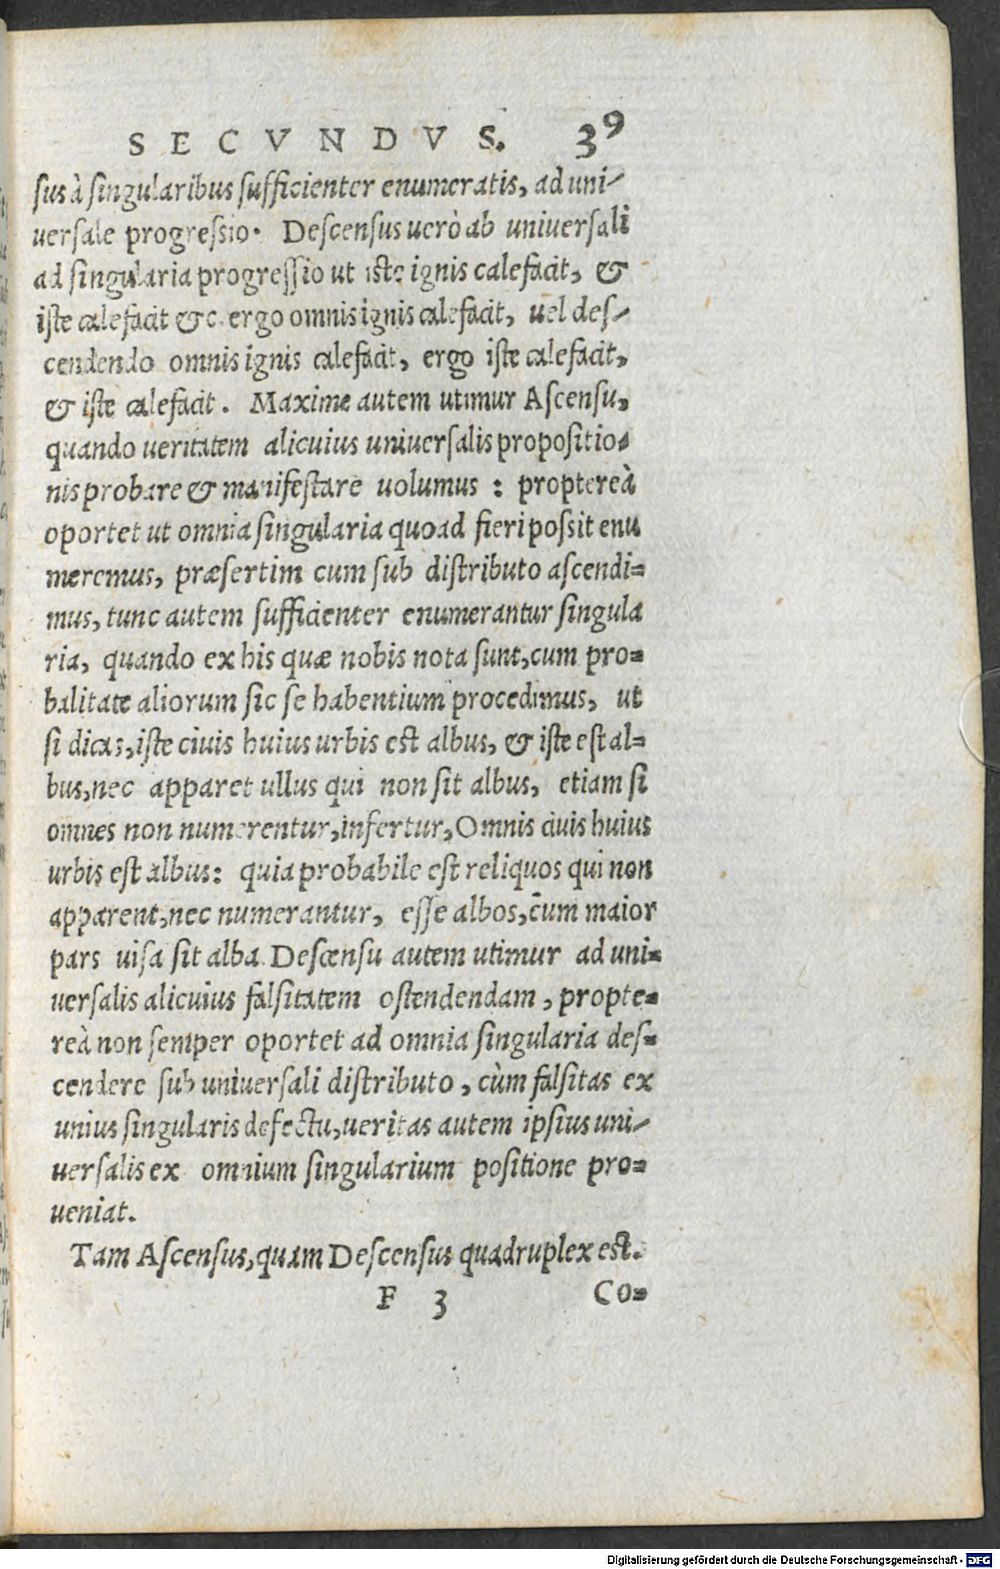 SECVNDVS. 39
sus à singularibus sufficienter enumeratis, ad uni-
uersale progressio. Descensus uerò ab uniuersali
ad singularia progressio ut iste ignis calefacit, &
iste calefacit &c. ergo omnis ignis calefacit, uel des-
cendendo omnis ignis calefacit, ergo iste calefacit,
& iste calefacit. Maxime autem utimur Ascensu,
quando ueritatem alicuius uniuersalis propositio-
nis probare & manifestare uolumus : proptereà
oportet ut omnia singularia quoad fieri possit enu
meremus, præsertim cum sub distributo ascendi-
mus, tunc autem sufficienter enumerantur singula
ria, quando ex his quæ nobis nota sunt, cum pro-
balitate aliorum sic se habentium procedimus, ut
si dicas, iste ciuis huius urbis est albus, & iste est al-
bus, nec apparet ullus qui non sit albus, etiam si
omnes non numerentur, infertur, Omnis ciuis huius
urbis est albus: quia probabile est reliquos qui non
apparent, nec numerantur, esse albos, cum maior
pars uisa sit alba. Descensu autem utimur ad uni-
uersalis alicuius falsitatem ostendendam, propte-
reà non semper oportet ad omnia singularia des-
cendere sub uniuersali distributo, cùm falsitas ex
unius singularis defectu, ueritas autem ipsius uni-
uersalis ex omnium singularium positione pro-
ueniat.
Tam Ascensus, quam Descensus quadruplex est.
F 3 Co-
Digitalisierung gefördert durch die Deutsche Forschungsgemeinschaft - DFG